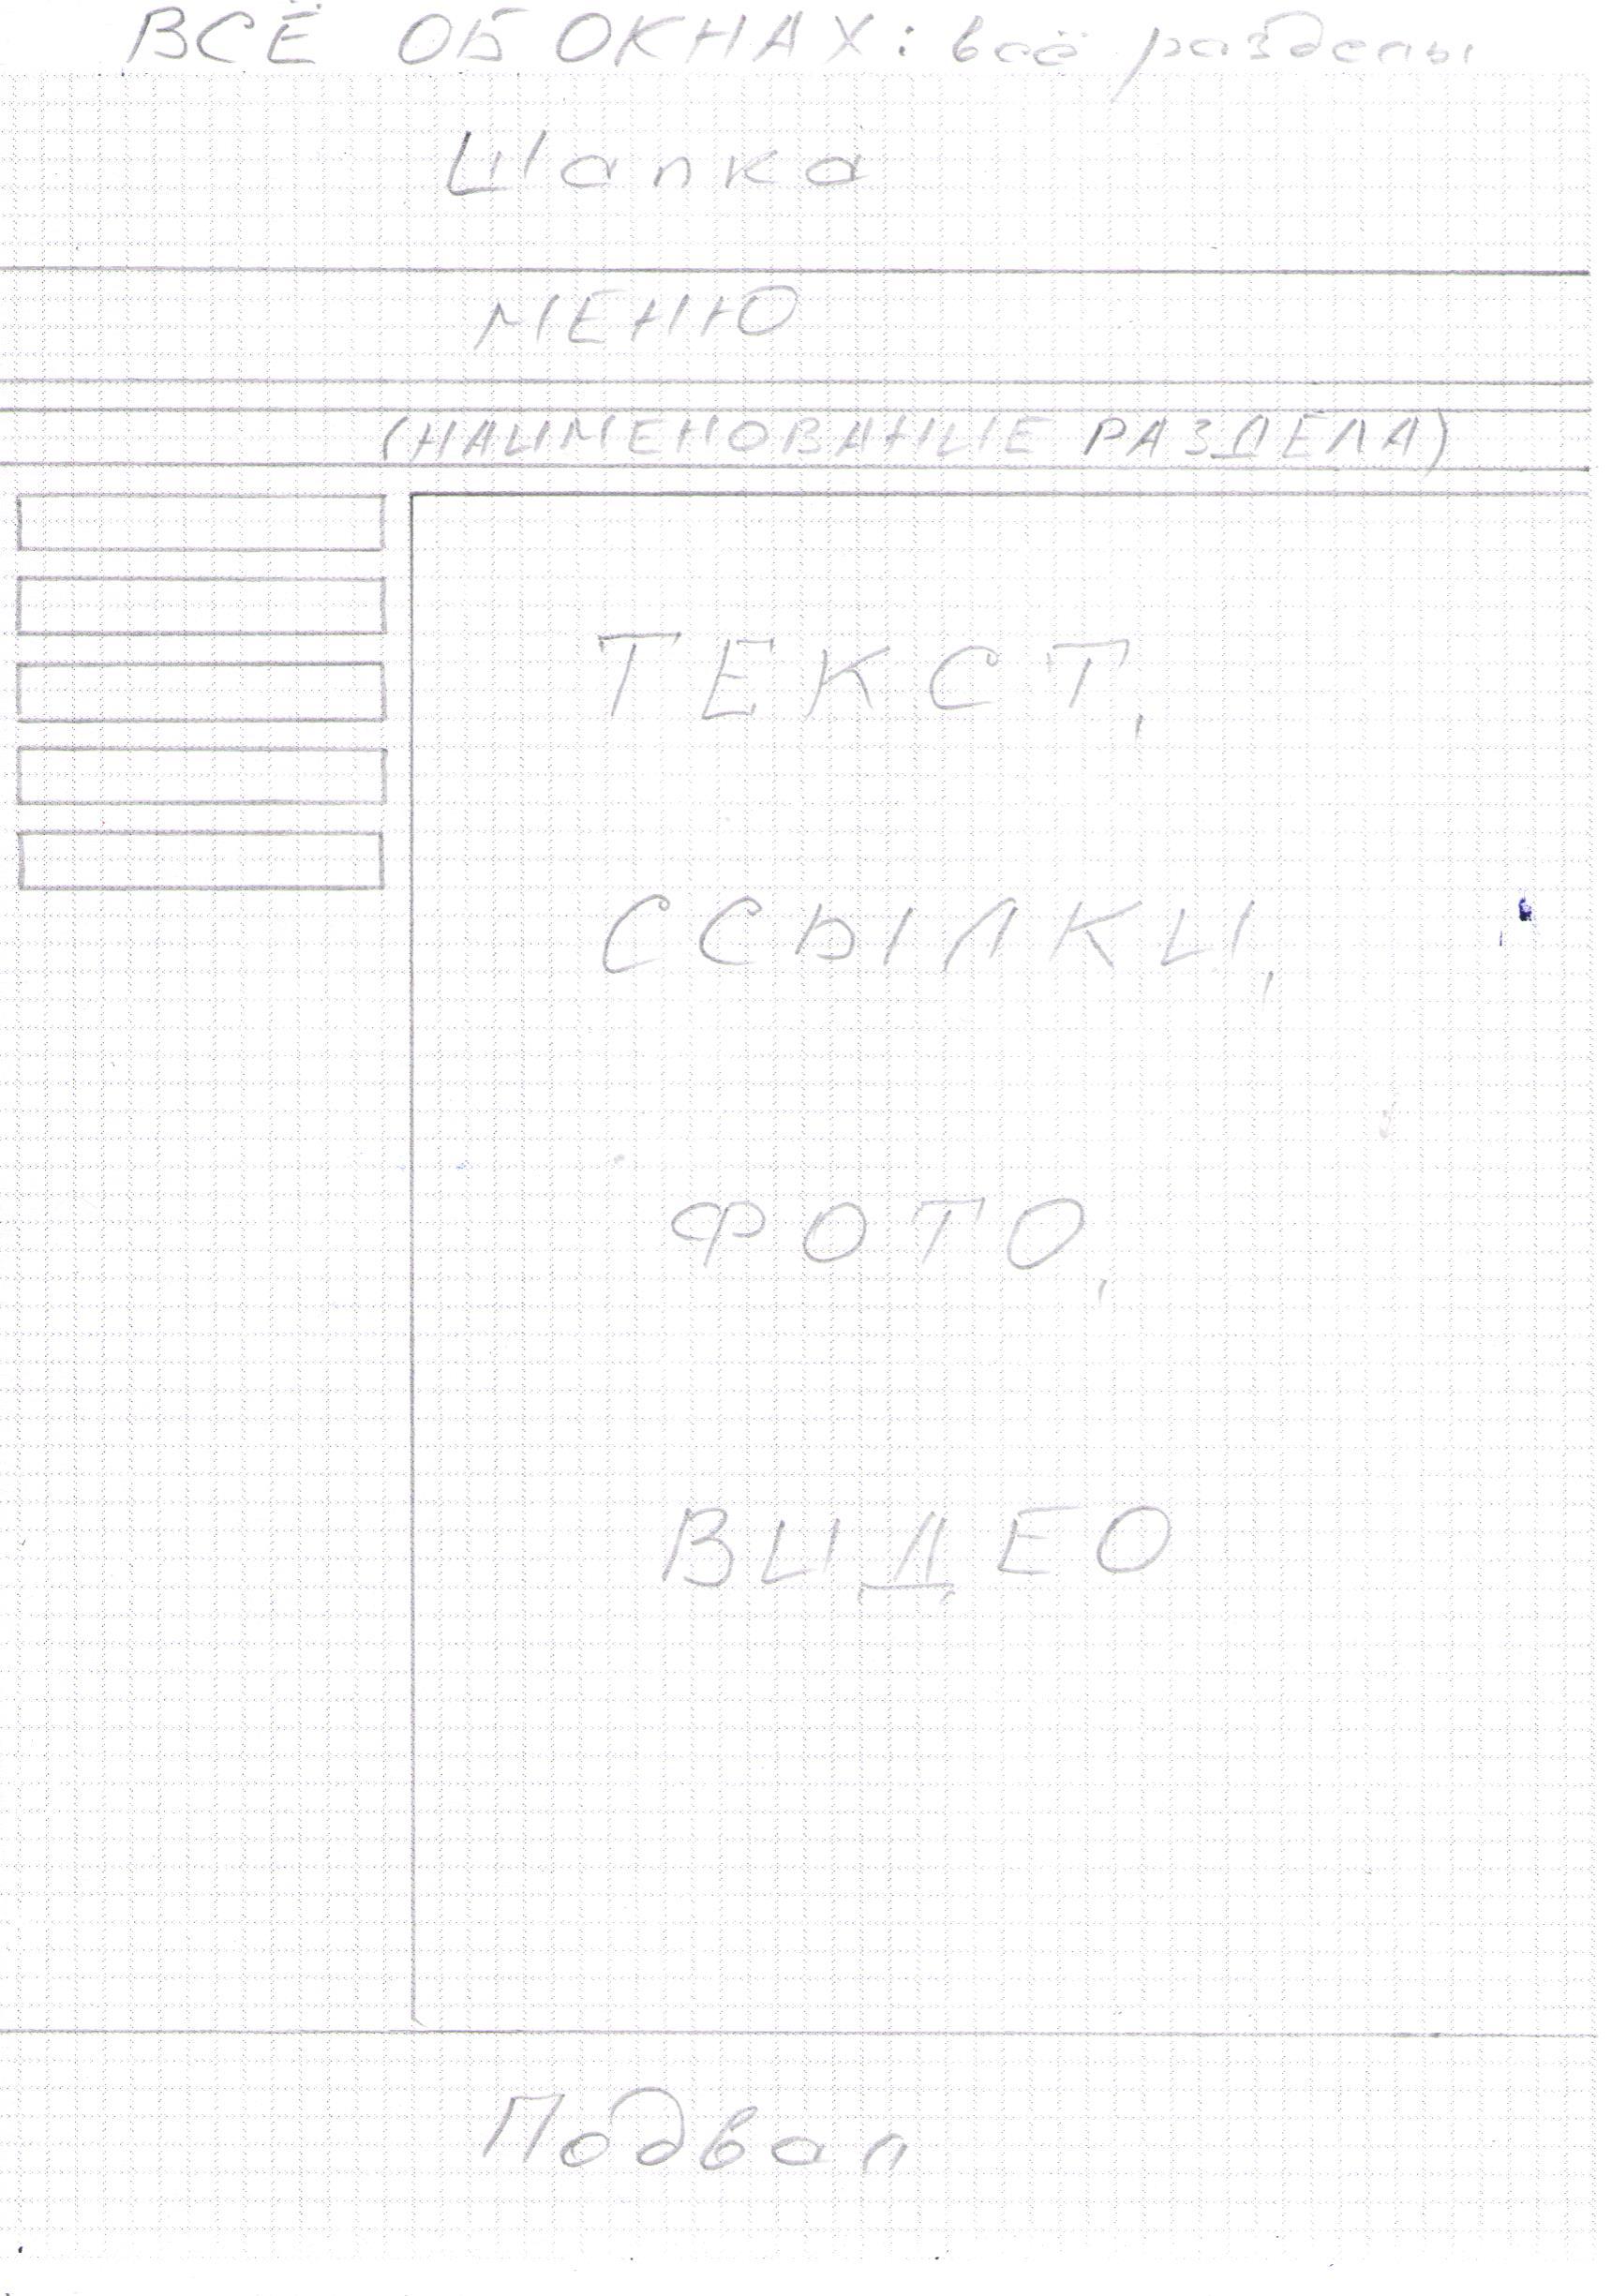 ВСЁ ОБ ОКНАХ: всё разделы
Шапка
МЕНЮ
(НАИМЕНОВАНИЕ РАЗДЕЛА)
ТЕКСТ,
ССЫЛКИ,
ФОТО,
ВИДЕО
Подвал